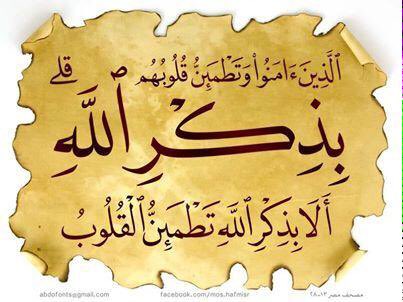 ٱلَّذِينَ ءَامَنُوا۟ وَتَطْمَئِنُّ قُلُوبُهُم
بِذِكْرِ ٱللَّهِ ۗ
أَلَا بِذِكْرِ ٱللَّهِ تَطْمَئِنُّ ٱلْقُلُوبُ
abdofonts@gmail.com facebook.com/mos.hafmisr مصحف مصر